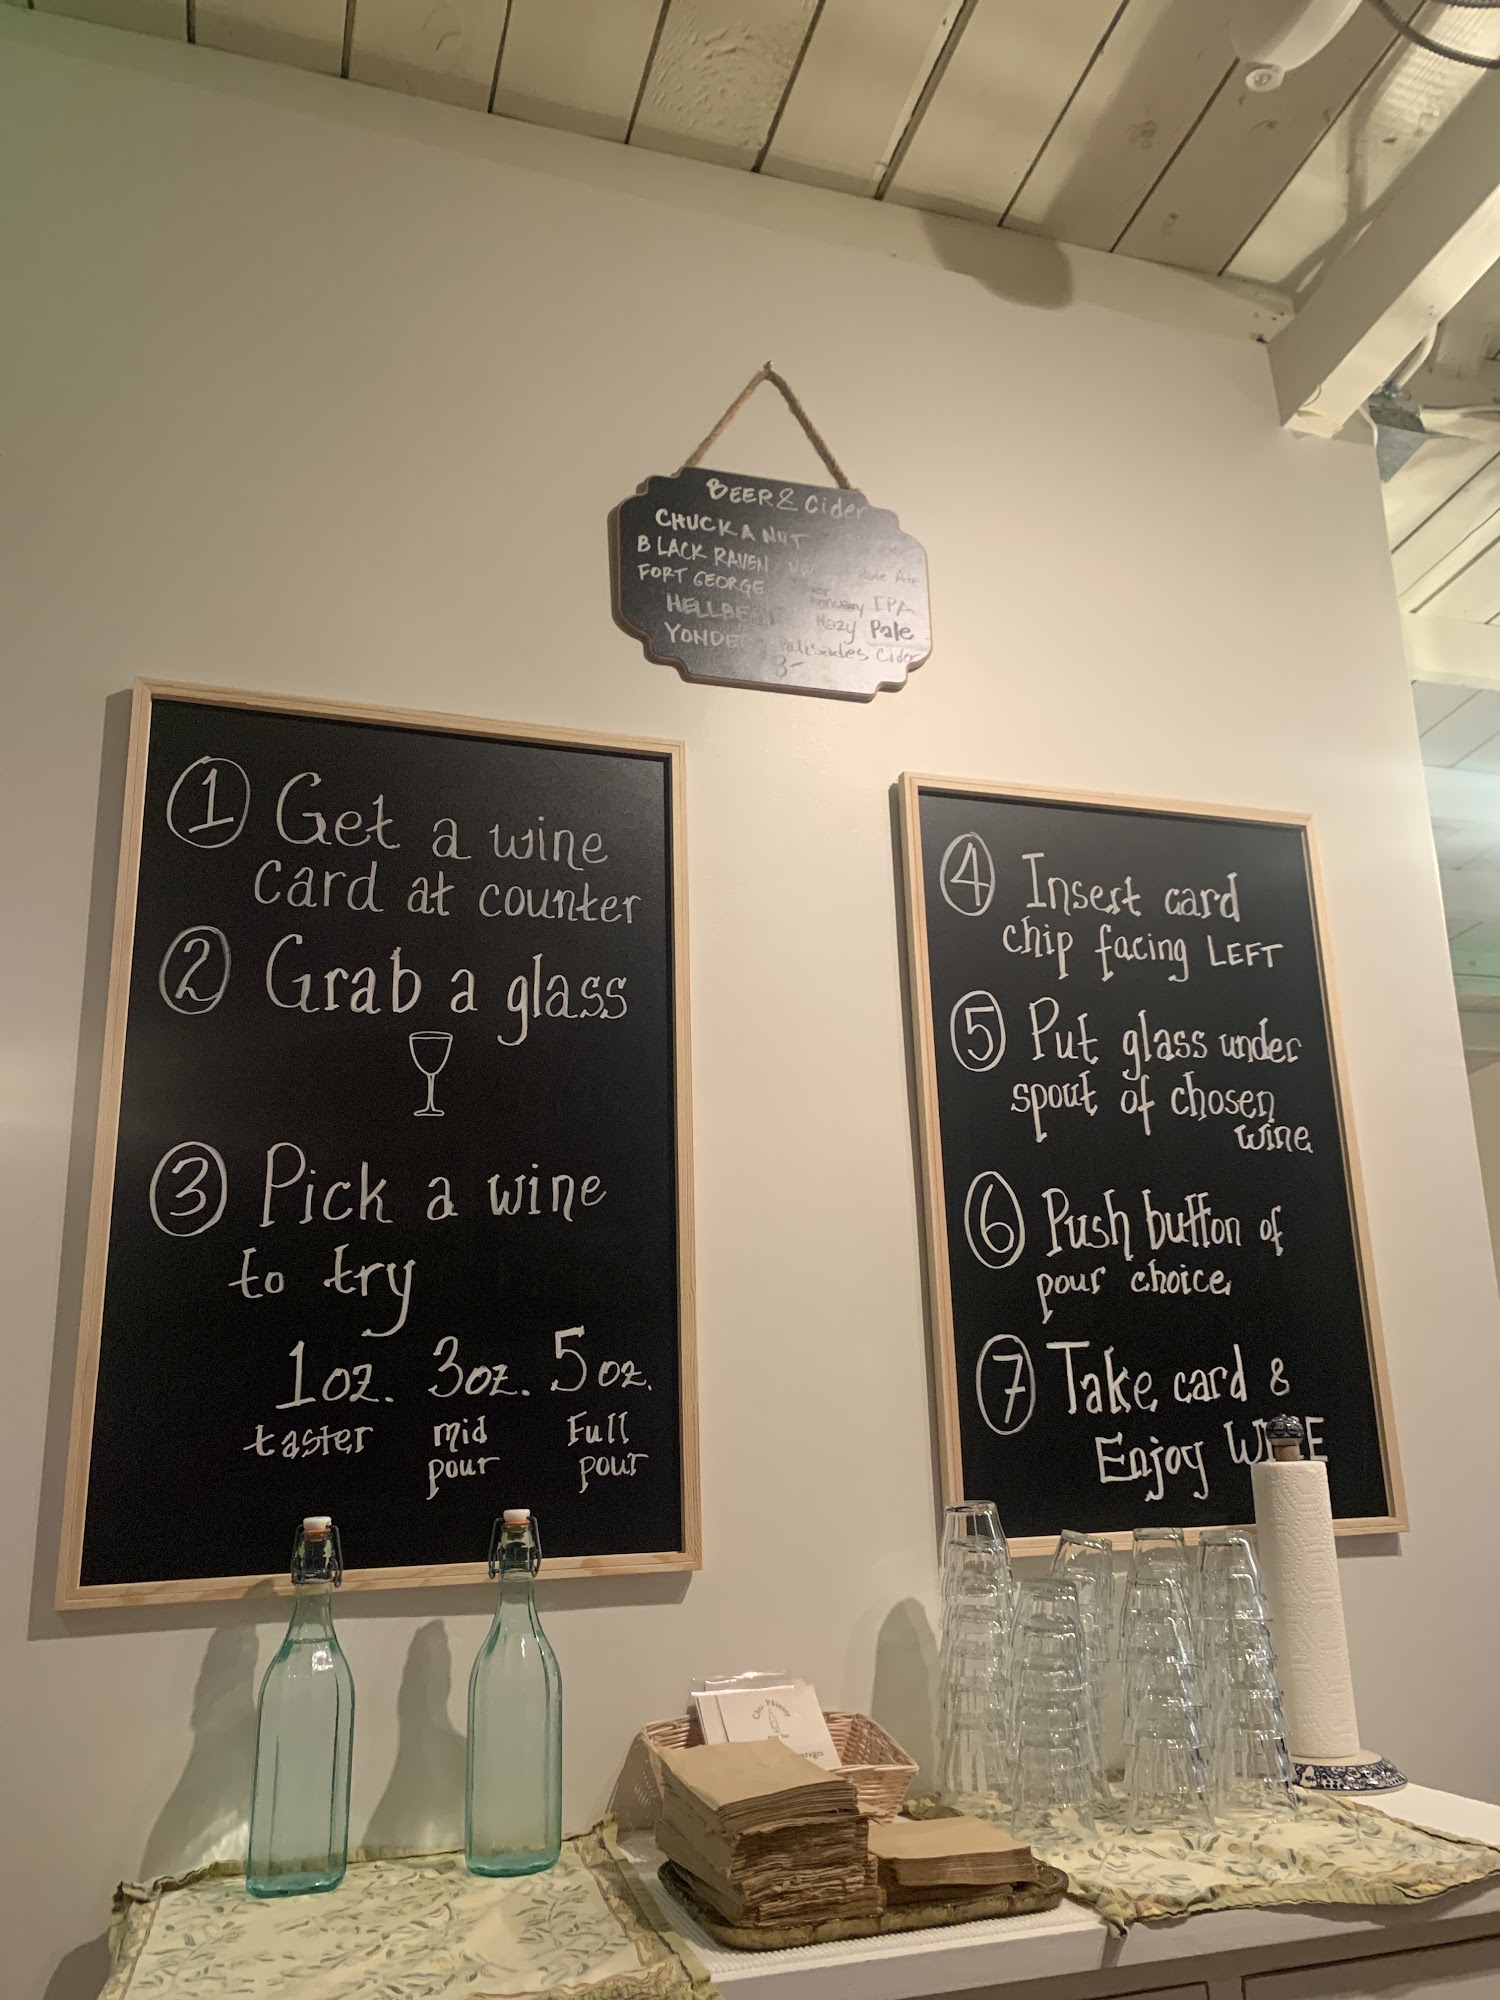 BEER & Cider
CHUCKANUT
BLACK RAVEN Pale Ale
FORT GEORGE IPA
HELLBENT Hazy Pale
YONDER Palisades Cider
3-
1 Get a wine
card at counter
2 Grab a glass
3 Pick a wine
to try
1oz. 3oz. 5oz.
taster mid Full
pour pour
4 Insert card
chip facing LEFT
5 Put glass under
spout of chosen
wine
6 Push button of
pour choice
7 Take card &
Enjoy WINE